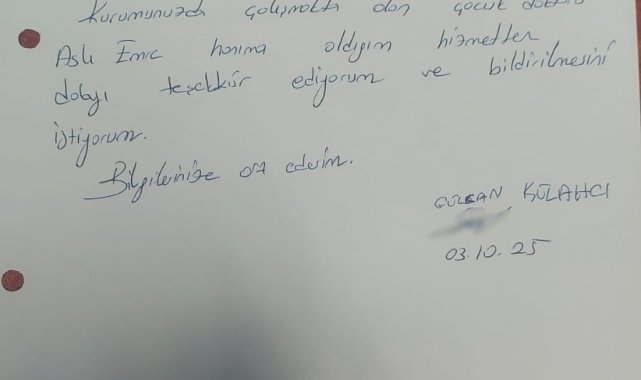 Kurumunuzda çalışmakta olan çocuk doktoru
Aslı Emre hanıma aldığım hizmetten
dolayı teşekkür ediyorum ve bildirilmesini
istiyorum.
Bilgilerinize arz ederim.
GÜLCAN KÜLAHCI
03.10.25